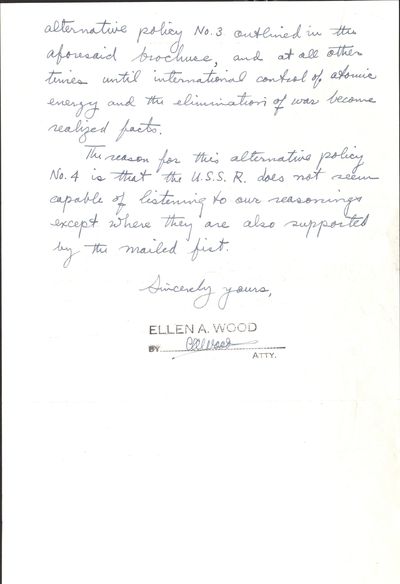 alternative policy No. 3 outlined in the
aforesaid brochure, and at all other
times until international control of atomic
energy and the elimination of war become
realized facts.
The reason for this alternative policy
No. 4 is that the U.S.S.R. does not seem
capable of listening to our reasonings
except where they are also supported
by the mailed fist.
Sincerely yours,
ELLEN A. WOOD
BY
ATTY.